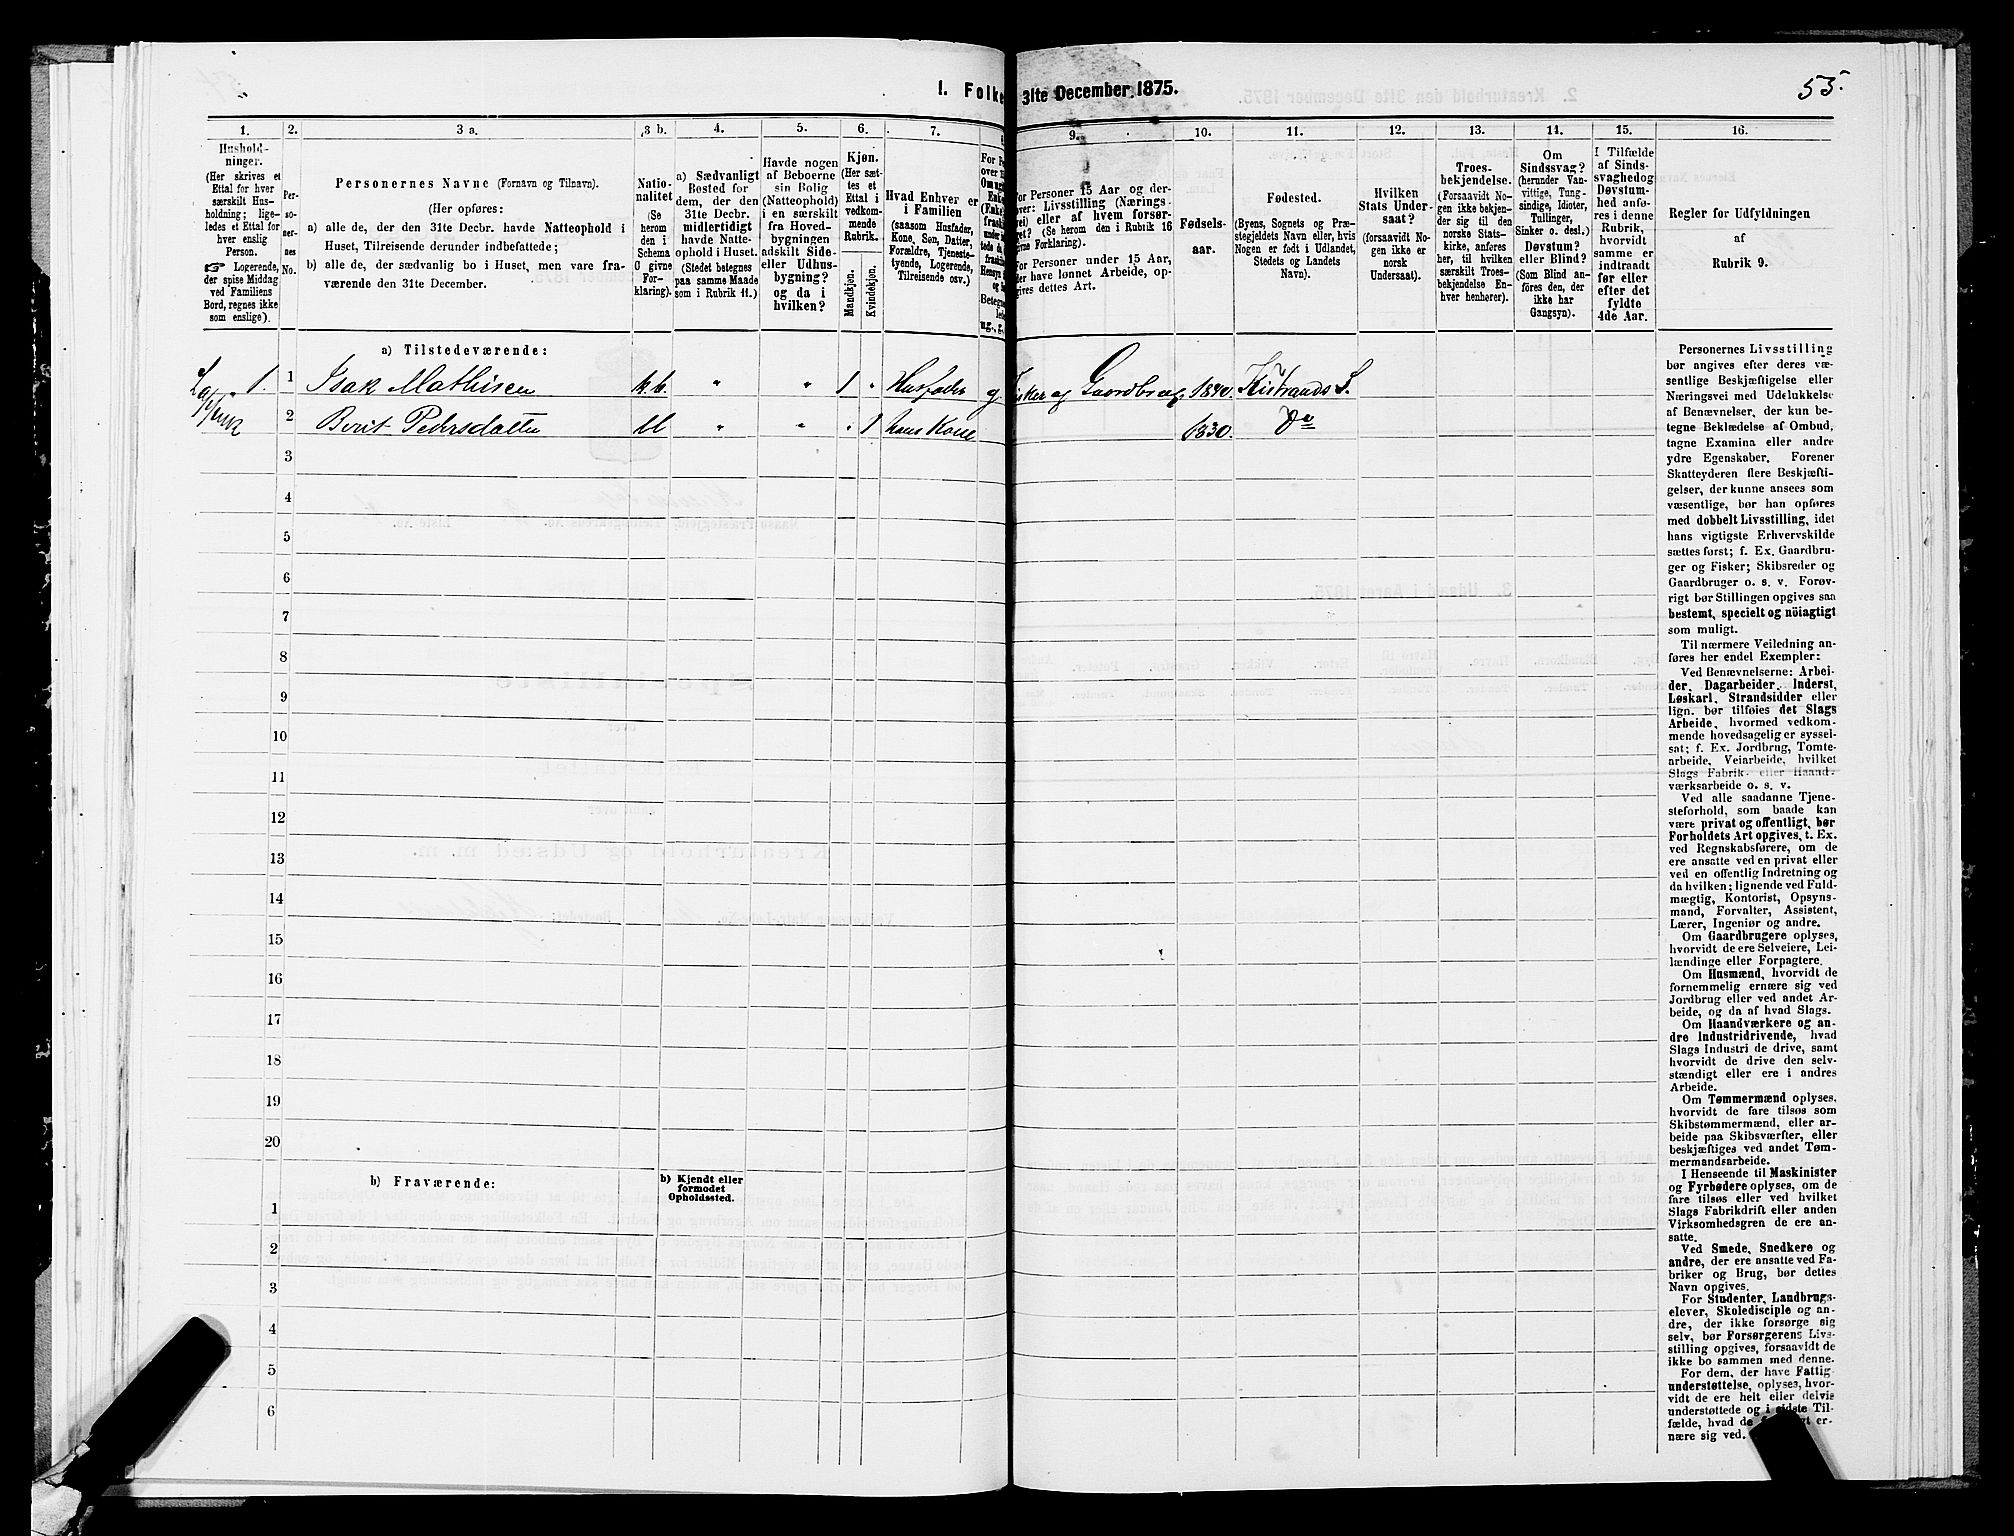 1. Folke 31te December 1875.
55.
1.
2.
3 a.
3 b.
4.
5.
6.
7.
9.
10.
11.
12.
13.
14.
15.
16.
Hushold-
ninger.
(Her skrives et
Ettal for hver
særskilt Hus-
holdning; lige-
ledes et Ettal for
hver enslig
Person.
☞ Logerende,
der spise Middag
ved Familiens
Bord, regnes ikke
som enslige).
Per-
so-
ner-
nes
No.
Personernes Navne (Fornavn og Tilnavn).
(Her opføres:
a) alle de, der den 31te Decbr. havde Natteophold i
Huset, Tilreisende derunder indbefattede;
b) alle de, der sædvanlig bo i Huset, men vare fra-
værende den 31te December.
Natio-
nalitet
(Se
herom
den i
Schema
0 givne
For-
klaring).
a) Sædvanligt
Bosted for
dem, der den
31te Decbr.
midlertidigt
havde Natte-
ophold i Huset.
(Stedet betegnes
paa samme Maade
som i Rubrik 11.)
Havde nogen
af Beboerne
sin Bolig
(Natteophold)
i en særskilt
fra Hoved-
bygningen
adskilt Side-
eller Udhus-
bygning?
og da i
hvilken?
Kjøn.
(Her sæt-
tes et
Ettal i
vedkom-
mende
Rubrik.
Mandkjøn.
Kvindekjøn.
Hvad Enhver er
i Familien
(saasom Husfader,
Kone, Søn, Datter,
Forældre, Tjeneste-
tyende, Logerende,
Tilreisende osv.)
For Personer 15 Aar og der-
over: Livsstilling (Nærings-
vei) eller af hvem forsør-
get? (Se herom den i Rubrik 16
givne Forklaring).
For Personer under 15 Aar,
der have lønnet Arbeide, op-
gives dettes Art.
Fødsels-
aar.
Fødested.
(Byens, Sognets og Præ-
stegjeldets Navn eller, hvis
Nogen er født i Udlandet,
Stedets og Landets
Navn).
Hvilken
Stats Under-
saat?
(forsaavidt No-
gen ikke er
norsk
Undersaat).
Troes-
bekjendelse.
(Forsaavidt No-
gen ikke bekjen-
der sig til den
norske Stats-
kirke, anføres
her, til hvilken
særskilt Troes-
bekjendelse En-
hver henhører).
Om
Sindssvag?
(herunder Van-
vittige, Tung-
sindige, Idioter,
Tullinger,
Sinker o. desl.)
Døvstum?
eller Blind?
(Som Blind an-
føres den, der
ikke har
Gangsyn).
I Tilfælde
af Sinds-
svaghed og
Døvstum-
hed anfø-
res i denne
Rubrik,
hvorvidt
samme er
indtraadt
før eller
efter det
fyldte
4de Aar.
Regler for Udfyldningen
af
Rubrik 9.
a) Tilstedeværende:
1. 1 Isak Mathisen " " 1 " Husfader g Fisker og Gaardbrug. 1840. Kistrands S.
2 Berit Pedersdatter " " " 1 hans Kone 1830. Do
3
4
5
6
7
8
9
10
11
12
13
14
15
16
17
18
19
20
b) Fraværende:
b) Kjendt eller
formodet
Opholdssted.
1
2
3
4
5
6
Personernes Livsstilling
bør angives efter deres væ-
sentlige Beskjæftigelse eller
Næringsvei med Udelukkelse
af Benævnelser, der kun be-
tegne Beklædelse af Ombud,
tagne Examina eller andre
ydre Egenskaber. Forener
Skatteyderen flere Beskjæfti-
gelser, der kunne ansees som
væsentlige, bør han opføres
med dobbelt Livsstilling, idet
hans vigtigste Erhvervskilde
sættes først; f. Ex. Gaardbru-
ger og Fisker; Skibsreder og
Gaardbruger o. s. v. Forøv-
rigt bør Stillingen opgives saa
bestemt, specielt og nöiagtigt
som muligt.
Til nærmere Veiledning an-
føres her endel Exempler:
Ved Benævnelserne: Arbei-
der, Dagarbeider, Inderst,
Løskarl, Strandsidder eller
lign. bør tilføies det Slags
Arbeide, hvormed vedkom-
mende hovedsagelig er syssel-
sat; f. Ex. Jordbrug, Tomte-
arbeide, Veiarbeide, hvilket
Slags Fabrik- eller Haand-
værksarbeide o. s. v.
Ved alle saadanne Tjene-
steforhold, som baade kan
være privat og offentligt, bør
Forholdets Art opgives, t. Ex.
ved Regnskabsførere, om de
ere ansatte ved en privat eller
ved en offentlig Indretning og
da hvilken; lignende ved Fuld-
mægtig, Kontorist, Opsyns-
mand, Forvalter, Assistent,
Lærer, Ingeniør og andre.
Om Gaardbrugere oplyses,
hvorvidt de ere Selveiere, Lei-
lændinge eller Forpagtere.
Om Husmænd, hvorvidt de
fornemmelig ernære sig ved
Jordbrug eller ved andet Ar-
beide, og da af hvad Slags.
Om Haandværkere og an-
dre Industridrivende, hvad
Slags Industri de drive, samt
hvorvidt de drive den selv-
stændigt eller ere i andres
Arbeide.
Om Tømmermænd oplyses,
hvorvidt de fare tilsøs som
Skibstømmermænd, eller ar-
beide paa Skibsværfter, eller
beskjæftiges ved andet Tøm-
mermandsarbeide.
I Henseende til Maskinister
og Fyrbødere oplyses, om de
fare tilsøs eller ved hvilket
Slags Fabrikdrift eller anden
Virksomhedsgren de ere an-
satte.
Ved Smede, Snedkere og
andre, der ere ansatte ved Fa-
briker og Brug, bør dettes
Navn opgives.
For Studenter, Landbrugs-
elever, Skoledisciple og an-
dre, der ikke forsørge sig
selv, bør Forsørgerens Livs-
stilling opgives, forsaavidt de
ikke bo sammen med denne.
For dem, der have Fattig-
understøttelse, oplyses, hvor-
vidt de ere helt eller delvis
understøttede og i sidste Til-
fælde, hvad de er-
nære sig ved.